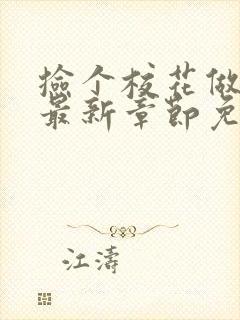 捡个校花做
最新章节免
江涛